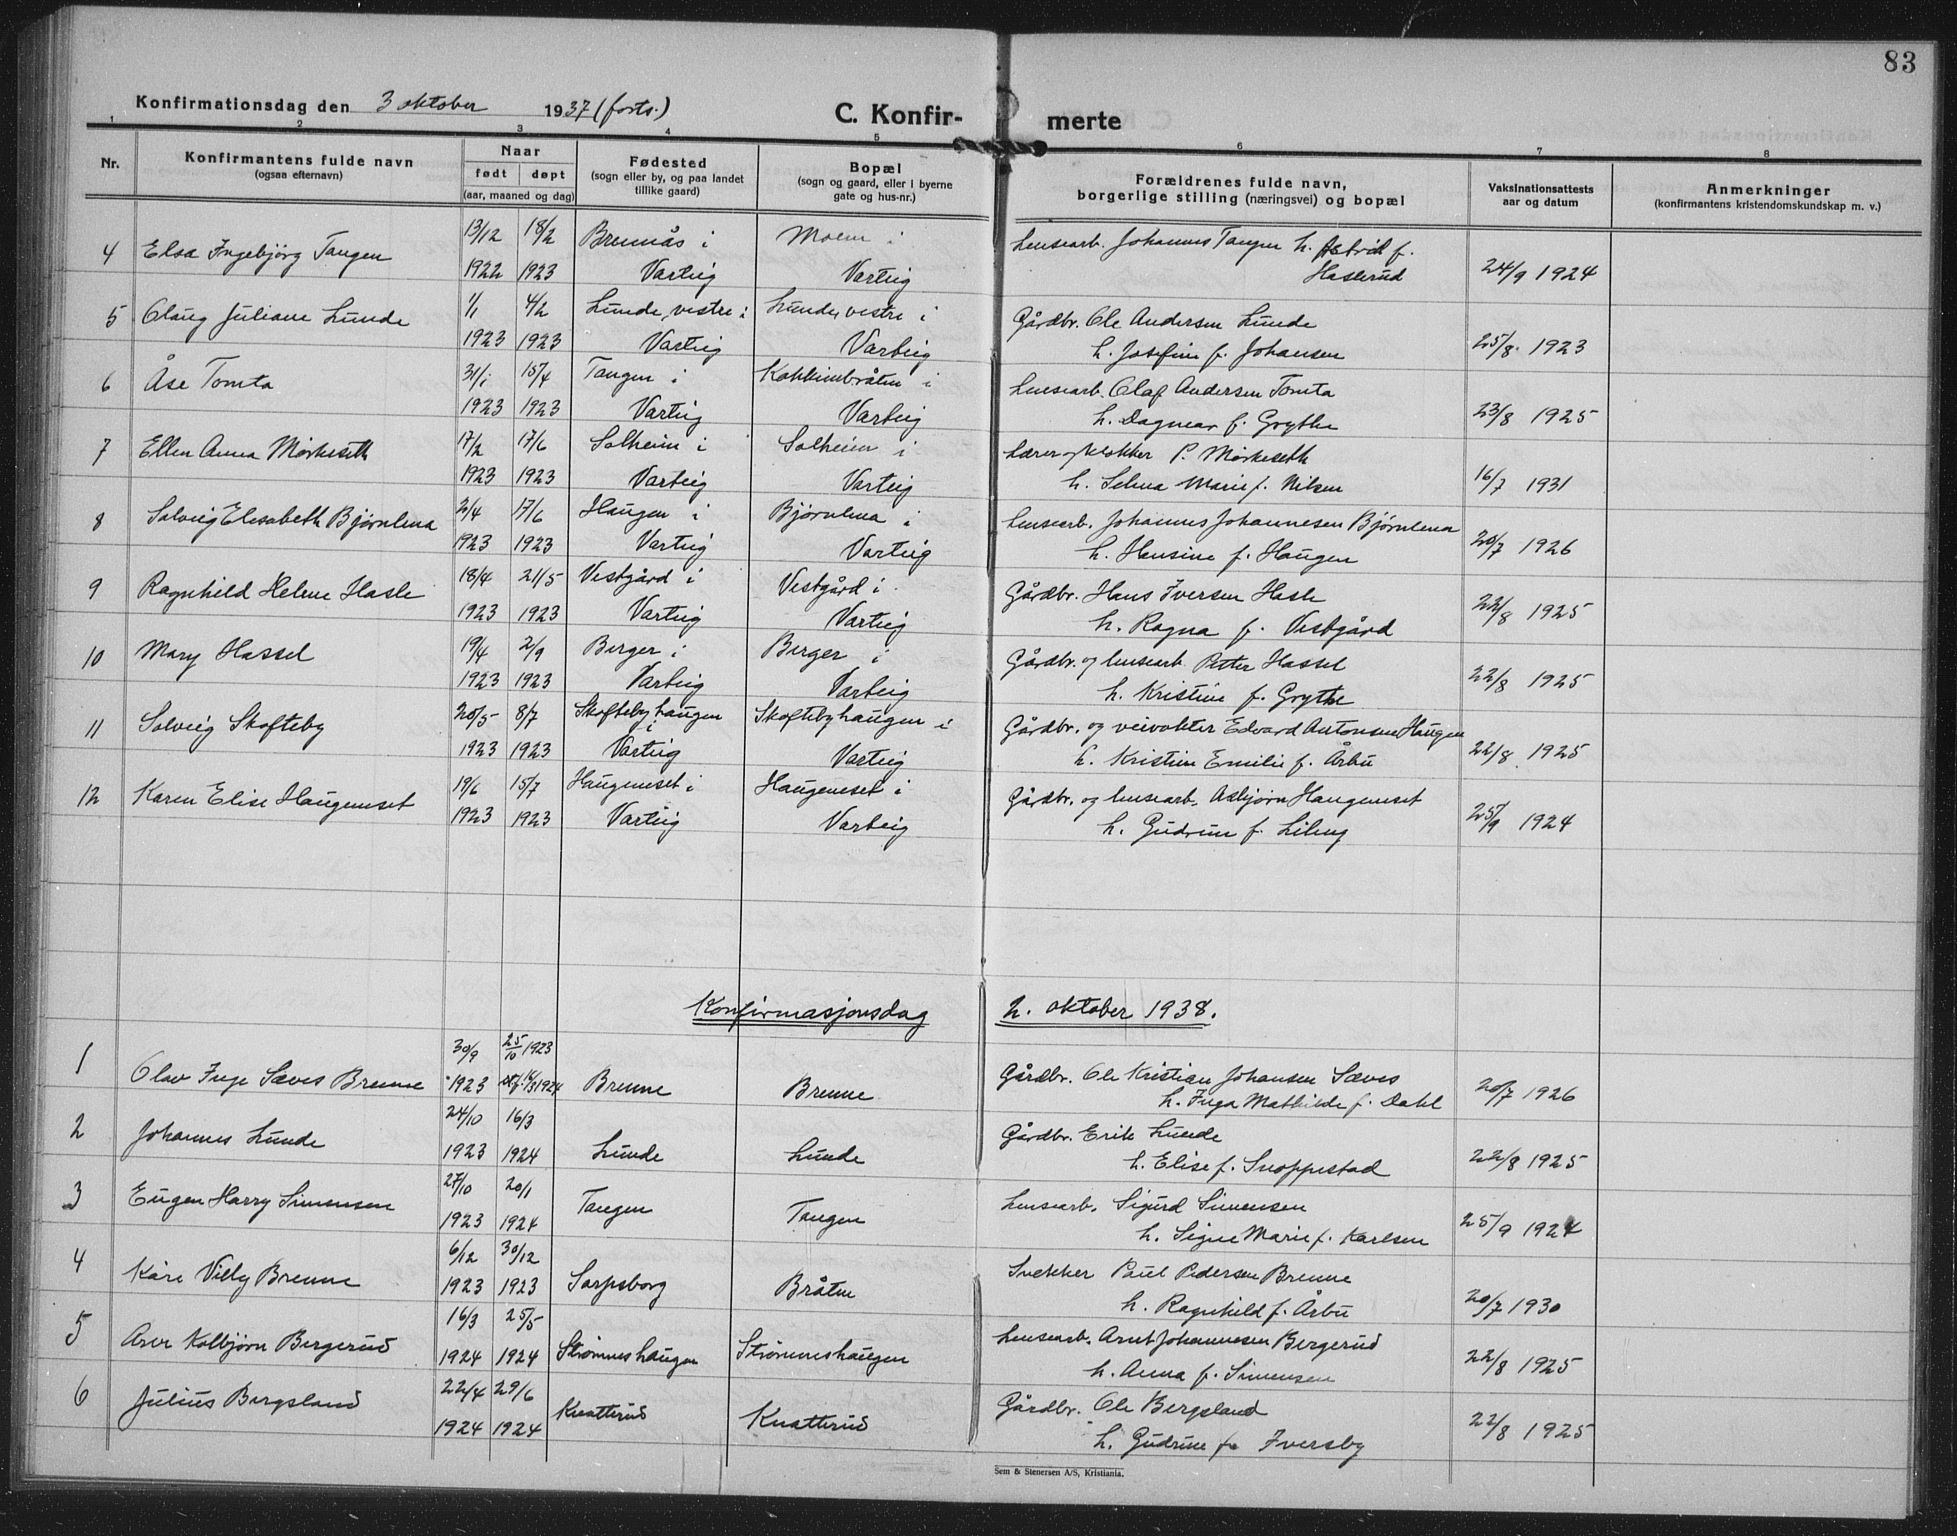 83
Konfirmationsdag den 3 oktober 1937 (forts.)
C. Konfir-merte
1 2 3 4 5 6 7 8
Nr.
Konfirmantens fulde navn
(ogsaa efternavn)
Naar
født døpt
(aar, maaned og dag)
Fødested
(sogn eller by, og paa landet
tillike gaard)
Bopæl
(sogn og gaard, eller i byerne
gate og hus-nr.)
Forældrenes fulde navn,
borgerlige stilling (næringsvei) og bopæl
Vaksinationsattests
aar og datum
Anmerkninger
(konfirmantens kristendomskundskap m. v.)
4 Elsa Ingebjørg Tangen 13/12 18/2 Brennås i Moen i Lensearb. Johannes Tangen h. Astrid f.
1922 1923 Varteig Varteig Haslerud 24/9 1924
5 Olaug Juliane Lunde 1/1 4/2 Lunde, vestre i Lunde, vestre i Gårdbr. Ole Andersen Lunde
1923 1923 Varteig Varteig h. Josefine f. Johansen 25/8. 1923
6 Åse Tomta 31/1 15/4 Tangen i Kokkimbråten i Lensearb. Olaf Andersen Tomta
1923 1923 Varteig Varteig h. Dagmar f. Grythe 23/8 1925
7 Ellen Anna Mørkeseth 17/2 17/6 Solheim i Solheim i Lærer og klokker P. Mørkeseth
1923 1923 Varteig Varteig h. Selma Marie f. Nilsen 16/7 1931
8 Solveig Elisabeth Bjørnlena 2/4 17/6 Haugen i Bjørnlena i Lensearb. Johannes Johannesen Bjørnlena
1923 1923 Varteig Varteig h. Hansine f. Haugen 20/7 1926
9 Ragnhild Helene Hasle 18/4 21/5 Vestgård i Vestgård i Gårdbr. Hans Iversen Hasle
1923 1923 Varteig Varteig h. Ragna f. Vestgård 22/8 1925
10 Mary Hassel 19/4 2/9 Berger i Berger i Gårdbr. og lensearb. Petter Hassel
1923 1923 Varteig Varteig h. Kristine f. Grythe 22/8 1925
11 Solveig Skofteby 20/5 8/7 Skoftebyhaugen i Skoftebyhaugen i Gårdbr. og veivokter Edvard Antonsen Haugen
1923 1923 Varteig Varteig h. Kristine Emilie f. Årbu 22/8 1925
12 Karen Elise Haugenset 19/6 15/7 Haugenset i Haugeneset i Gårdbr. og lensearb. Asbjørn Haugeneset
1923 1923 Varteig Varteig h. Gudrun f. Lileng 25/9 1924
Konfirmasjonsdag 2. oktober 1938.
1 30/9 25/10 1923
Olav Inge Sæves Brenne 1923 stf. 16/3 1924 Brenne Brenne Gårdbr. Ole Kristian Johansen Sæves
h. Inga Mathilde f. Dahl 20/7 1926
2 Johannes Lunde 24/10 16/3 Gårdbr. Erik Lunde
1923 1924 Lunde Lunde h. Elise f. Snoppestad 22/8 1925
3 Eugen Harry Simensen 27/10 20/1 Tangen Tangen Lensearb. Sigurd Simensen
1923 1924 h. Signe Marie f. Karlsen 25/9 1924
4 Kåre Villy Brenne 6/12 30/12 Snekker Paul Pedersen Brenne
1923 1923 Sarpsborg Bråten h. Ragnhild f. Årbu 20/7 1930
5 Arer Kolbjørn Bergerud 16/3 25/5 Lensearb. Arnt Johannesen Bergerud
1924 1924 Strømneshaugen Strømneshaugen h. Anna f. Simensen 22/8 1925
6 Julius Bergsland 22/4 29/6 Gårdbr. Ole Bergsland
1924 1924 Knatterud Knatterud h. Gudrune f. Iversby 22/8 1925
Sem & Stenersen A/S, Kristiania.